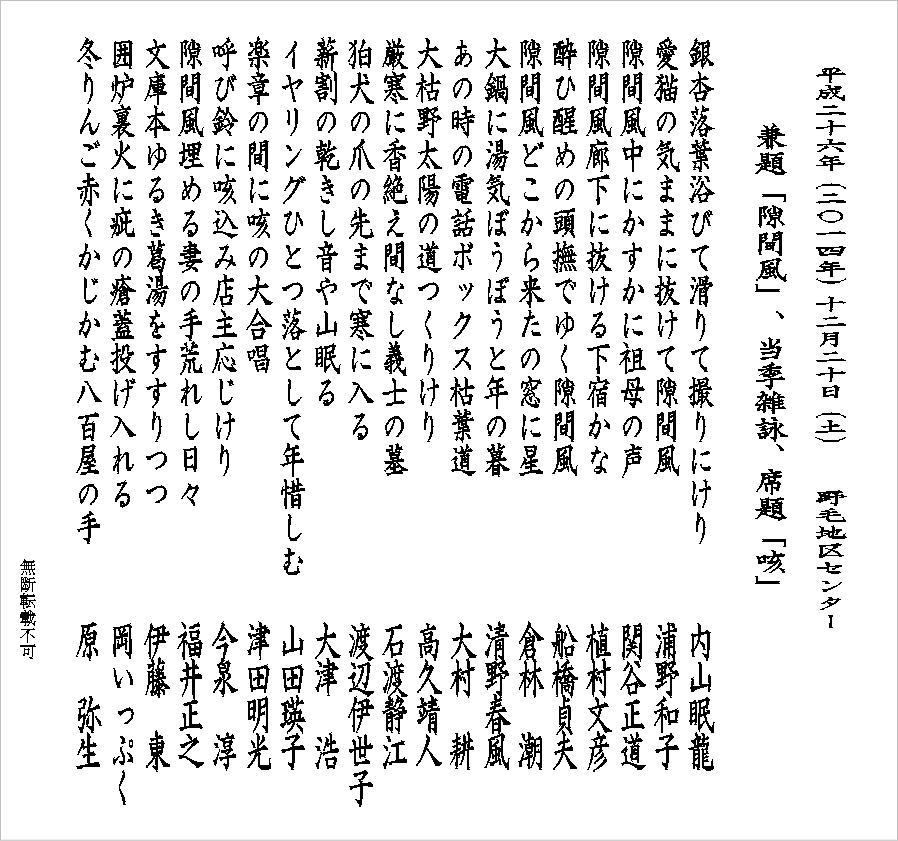 平成二十六年(二〇一四年)十二月二十日(土) 野毛地区センター
兼題「隙間風」、当季雑詠、席題「咳」
銀杏落葉浴びて滑りて撮りにけり 内山眠龍
愛猫の気ままに抜けて隙間風 浦野和子
隙間風中にかすかに祖母の声 関谷正道
隙間風廊下に抜ける下宿かな 植村文彦
酔ひ醒めの頭撫でゆく隙間風 船橋貞夫
隙間風どこから来たの窓に星 倉林 潮
大鍋に湯気ぼうぼうと年の暮 清野春風
あの時の電話ボックス枯葉道 大村 耕
大枯野太陽の道つくりけり 高久靖人
厳寒に香絶え間なし義士の墓 石渡静江
狛犬の爪の先まで寒に入る 渡辺伊世子
薪割の乾きし音や山眠る 大津 浩
イヤリングひとつ落として年惜しむ 山田瑛子
楽章の間に咳の大合唱 津田明光
呼び鈴に咳込み店主応じけり 今泉 淳
隙間風埋める妻の手荒れし日々 福井正之
文庫本ゆるき葛湯をすすりつつ 伊藤 東
囲炉裏火に疵の瘡蓋投げ入れる 岡いっぷく
冬りんご赤くかじかむ八百屋の手 原 弥生
無断転載不可